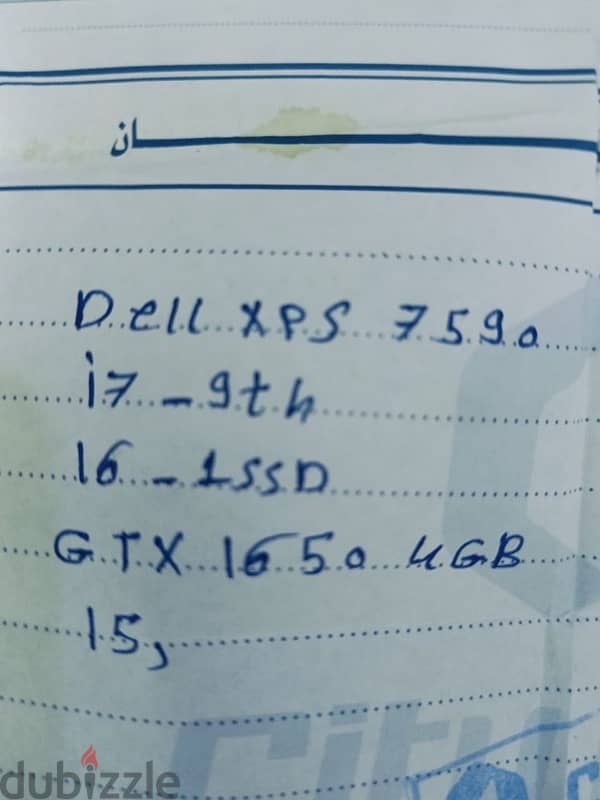 ـــــــــان
Dell XPS 7590
i7 - 9th
16 - 1SSD
GTX 1650 4GB
15,
City
dubizzle